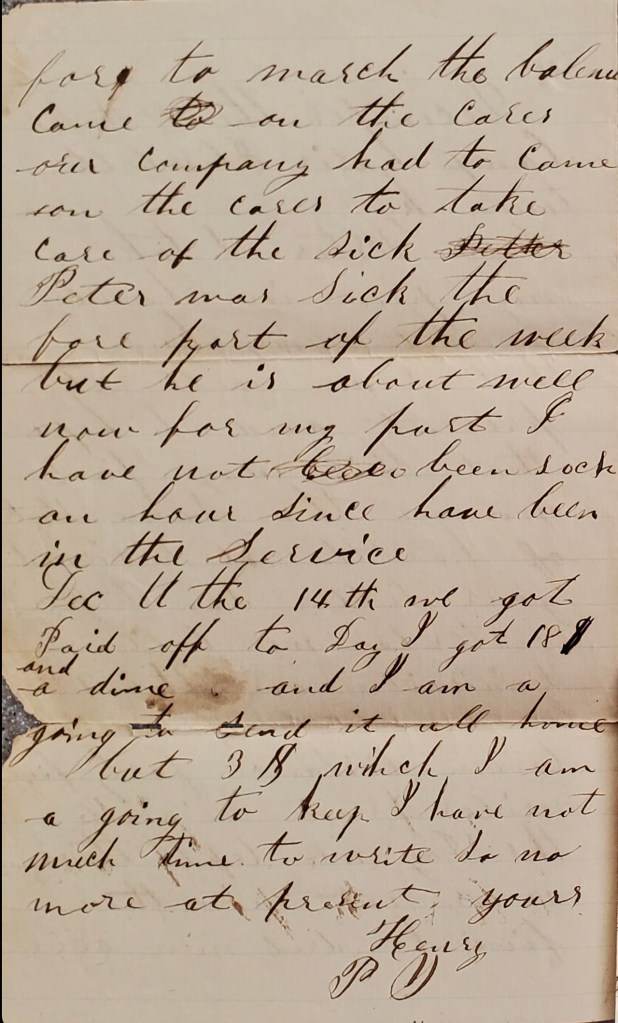 fore to march the balenc
came to on the cares
our company had to came
on the cares to take
care of the sick Petter
Peter was Sick the
fore part of the week
but he is about well
now for my part I
have not been sock
an hour since have been
in the Service
Dec the 14th we got
Paid off to Day I got 18 $
and
a dime and I am a
going to send it all home
but 3 $ which I am
a going to keep I have not
much time to write so no
more at present yours
Henry
P